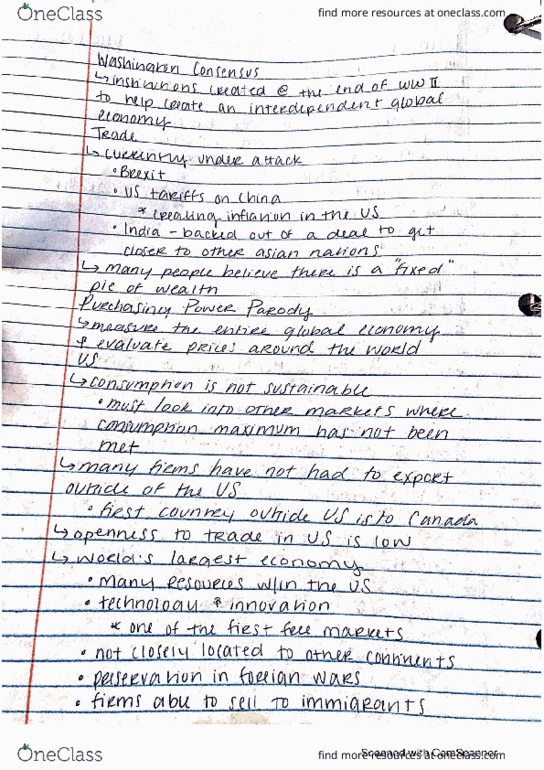 OneClass
find more resources at oneclass.com
Washington Consensus
↳ institutions created @ the end of WW II
to help create an interdependent global
economy
Trade
↳ currently under attack
• Brexit
• US tariffs on China
* creating inflation in the US
• India - backed out of a deal to get
closer to other asian nations
↳ many people believe there is a "fixed"
pie of wealth
Purchasing Power Parody
↳ measure the entire global economy
& evaluate prices around the world
US
↳ consumption is not sustainable
• must look into other markets where
consumption maximum has not been
met
↳ many firms have not had to export
outside of the US
• first country outside US is to Canada
↳ openness to trade in US is low
↳ world's largest economy
• many resources w/in the US
• technology & innovation
* one of the first free markets
• not closely located to other continents
• perservation in foreign wars
• firms able to sell to immigrants
OneClass
find more resources at oneclass.com
Scanned with CamScanner